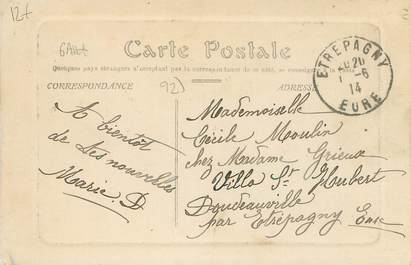 12+
Carte Postale
Quelques pays étrangers n'acceptant pas la correspondance de ce côté, se renseigner à la Poste
CORRESPONDANCE
ADRESSE
92)
ETREPAGNY
20 20
1 - 6
14
EURE
A bientôt
de tes nouvelles
Marie D.
Mademoiselle
Cécile Moulin
chez Madame Grieux
Villa St Hubert
Doudeauville
par Etrépagny Eure